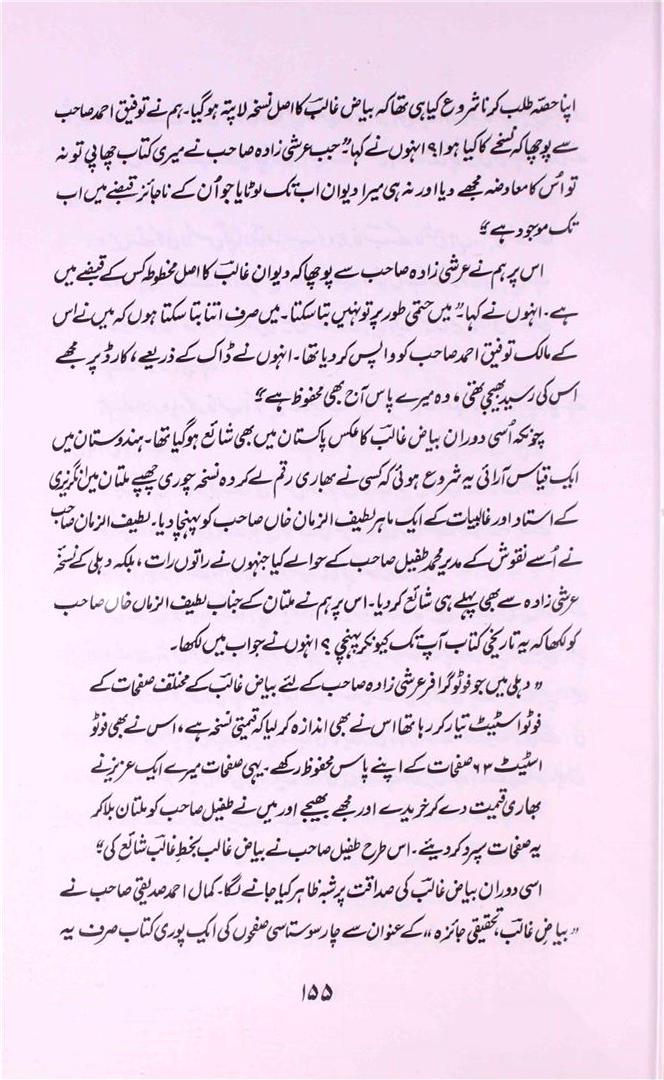 اپنا حصّہ طلب کرنا شروع کیا ہی تھا کہ بیاض غالبؔ کا اصل نسخہ لاپتہ ہوگیا۔ ہم نے توفیق احمد صاحب
سے پوچھا کہ نسخے کا کیا ہوا؟ انہوں نے کہا ” جب عرشی زادہ صاحب نے میری کتاب چھاپی تو نہ
تو اُس کا معاوضہ مجھے دیا اور نہ ہی میرا دیوان اب تک لوٹایا جو اُن کے ناجائز قبضے میں اب
تک موجود ہے “
اس پر ہم نے عرشی زادہ صاحب سے پوچھا کہ دیوان غالبؔ کا اصل مخطوطہ کس کے قبضے میں
ہے۔ انہوں نے کہا۔ ” میں حتمی طور پر تو نہیں بتا سکتا۔ میں صرف اتنا بتا سکتا ہوں کہ میں نے اس
کے مالک توفیق احمد صاحب کو واپس کر دیا تھا۔ انہوں نے ڈاک کے ذریعے، کارڈ پر مجھے
اس کی رسید بھیجی تھی، وہ میرے پاس آج بھی محفوظ ہے “
چونکہ اُسی دوران بیاض غالبؔ کا عکس پاکستان میں بھی شائع ہوگیا تھا۔ ہندوستان میں
ایک قیاس آرائی یہ شروع ہوئی کہ کسی نے بھاری رقم لے کر وہ نسخہ چوری چھپے ملتان میں انگریزی
کے استاد اور غالبیات کے ایک ماہر لطیف الزمان خاں صاحب کو پہنچا دیا۔ لطیف الزمان صاحب
نے اُسے نقوش کے مدیر محمد طفیل صاحب کے حوالے کیا جنہوں نے راتوں رات، بلکہ دہلی کے نسخۂ
عرشی زادہ سے بھی پہلے ہی شائع کر دیا۔ اس پر ہم نے ملتان کے جناب لطیف الزماں خاں صاحب
کو لکھا کہ یہ تاریخی کتاب آپ تک کیونکر پہنچی ؟ انہوں نے جواب میں لکھا۔
” دہلی میں جو فوٹو گرافر عرشی زادہ صاحب کے لئے بیاض غالبؔ کے مختلف صفحات کے
فوٹو اسٹیٹ تیار کر رہا تھا اس نے بھی اندازہ کر لیا کہ قیمتی نسخہ ہے، اس نے بھی فوٹو
اسٹیٹ ۶۳ صفحات کے اپنے پاس محفوظ رکھے۔ یہی صفحات میرے ایک عزیز نے
بھاری قیمت دے کر خریدے اور مجھے بھیجے اور میں نے طفیل صاحب کو ملتان بلا کر
یہ صفحات سپرد کر دیئے۔ اس طرح طفیل صاحب نے بیاض غالب بخطِ غالبؔ شائع کی “
اسی دوران بیاض غالبؔ کی صداقت پر شبہ ظاہر کیا جانے لگا۔ کمال احمد صدیقی صاحب نے
” بیاضِ غالبؔ، تحقیقی جائزہ “ کے عنوان سے چار سو ستاسی صفحوں کی ایک پوری کتاب صرف یہ
۱۵۵